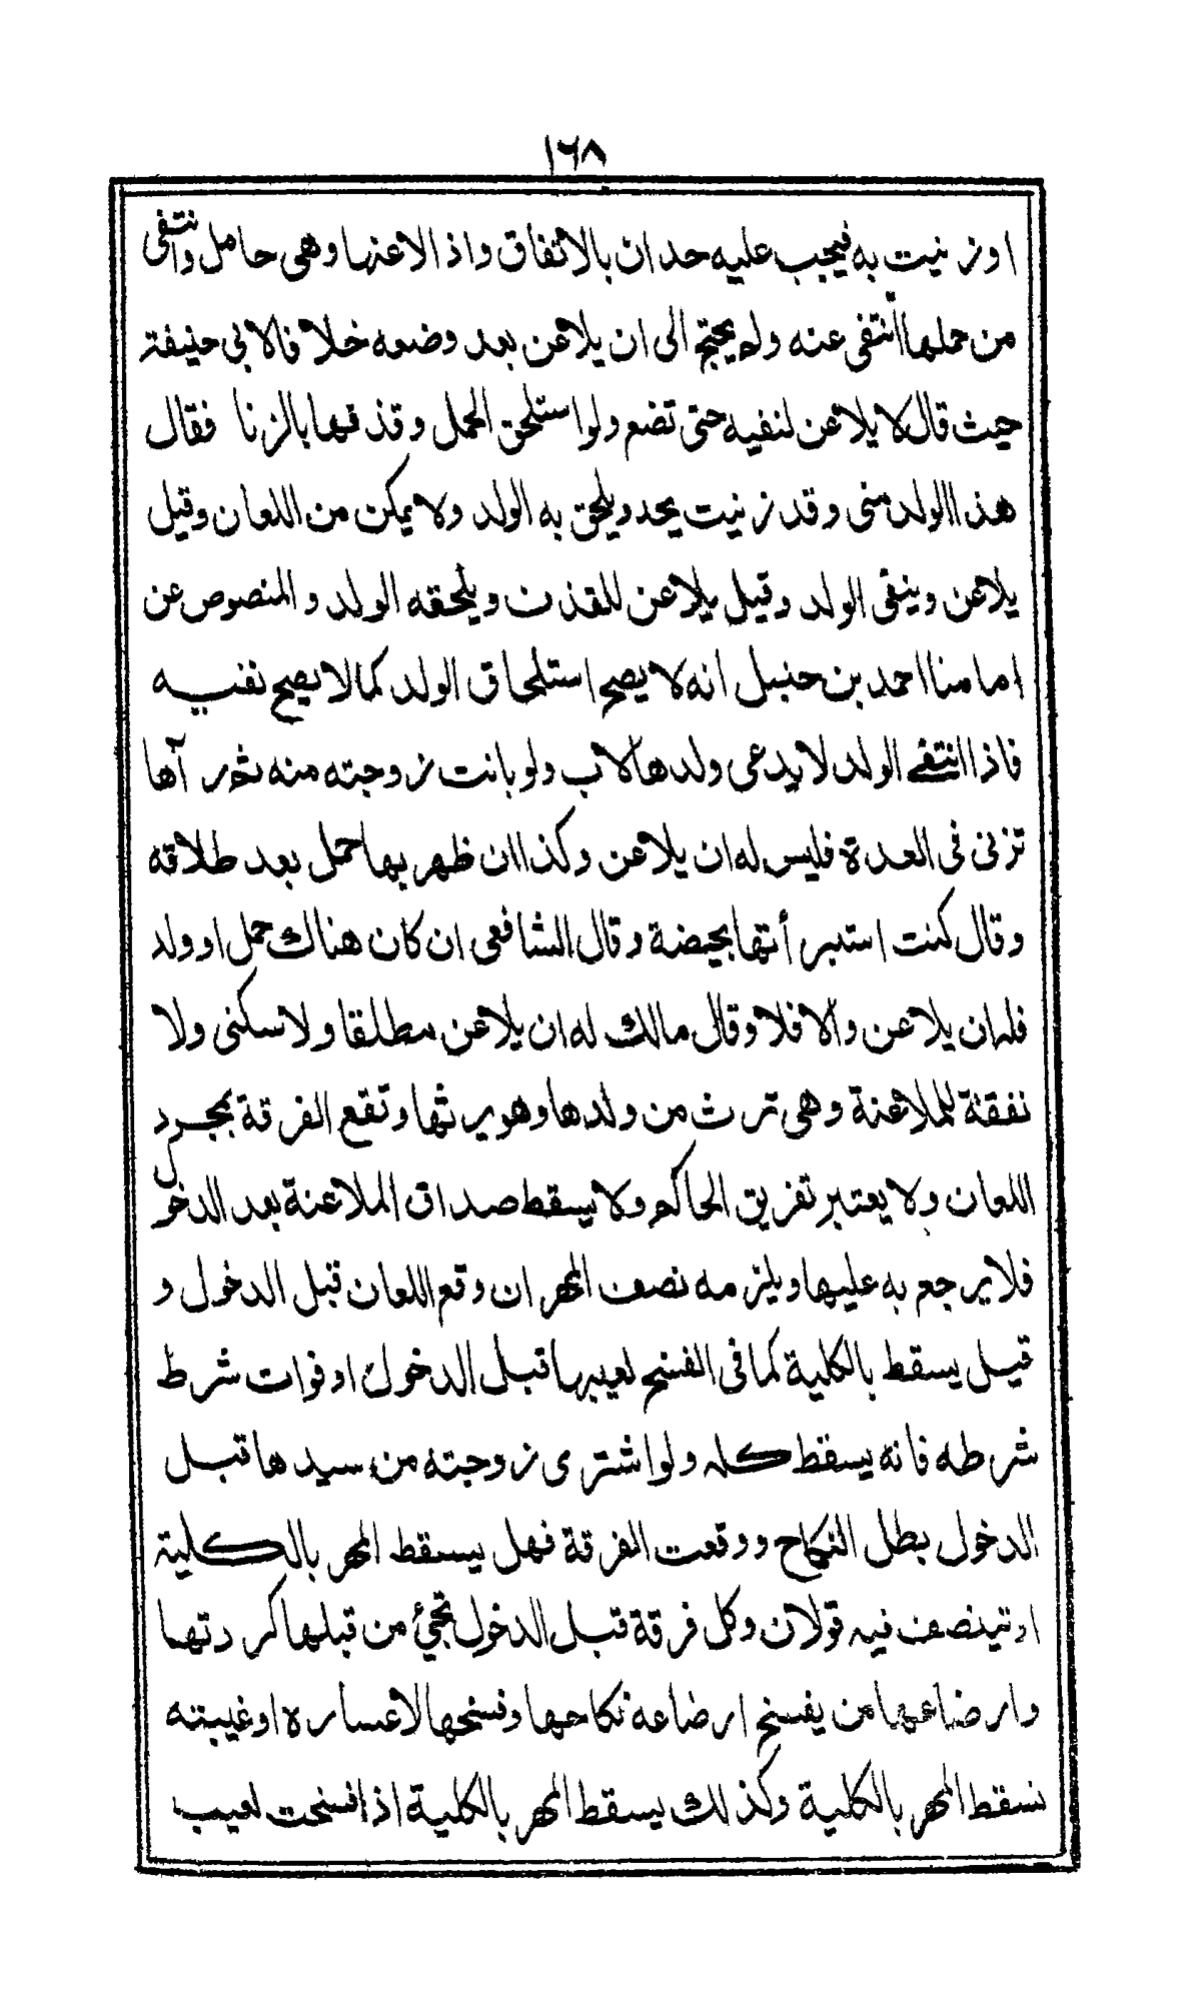 ١٦٨
او زنيت به فيجب عليه حدان بالاتفاق واذا لاعنها وهى حامل وانتفى
من حملها انتفى عنه ولم يحتج الى ان يلاعن بعد وضعه خلافا لابي حنيفة
حيث قال لا يلاعن لنفيه حتى تضع ولو استلحق الحمل وقذفها بالزنا فقال
هذا الولد منى وقد زنيت يحد ويلحق به الولد ولا يمكن من اللعان وقيل
يلاعن وينفى الولد وقيل يلاعن للقذف ويلحقه الولد والمنصوص عن
امامنا احمد بن حنبل انه لا يصح استلحاق الولد كما لا يصح نفيه
فاذا انتفى الولد لا يدعى ولدها لاب ولو بانت زوجته منه ثم رآها
تزنى فى العدة فليس له ان يلاعن وكذا ان ظهر بها حمل بعد طلاقه
وقال كنت استبرأتها بحيضة وقال الشافعى ان كان هناك حمل او ولد
فله ان يلاعن والا فلا وقال مالك له ان يلاعن مطلقا ولا سكنى ولا
نفقة للملاعنة وهى ترث من ولدها وهو يرثها وتقع الفرقة بمجرد
اللعان ولا يعتبر تفريق الحاكم ولا يسقط صداق الملاعنة بعد الدخول
فلا يرجع به عليها ويلزمه نصف المهر ان وقع اللعان قبل الدخول و
قيل يسقط بالكلية كما فى الفسخ لعيبها قبل الدخول او فوات شرط
شرطه فانه يسقط كله ولو اشترى زوجته من سيدها قبل
الدخول بطل النكاح ووقعت الفرقة فهل يسقط المهر بالكلية
او يتنصف فيه قولان وكل فرقة قبل الدخول تجئ من قبلها كردتها
وارضاعها من يفسخ ارضاعه نكاحها وفسخها لاعساره او غيبته
تسقط المهر بالكلية وكذلك يسقط المهر بالكلية اذا فسخت لعيب